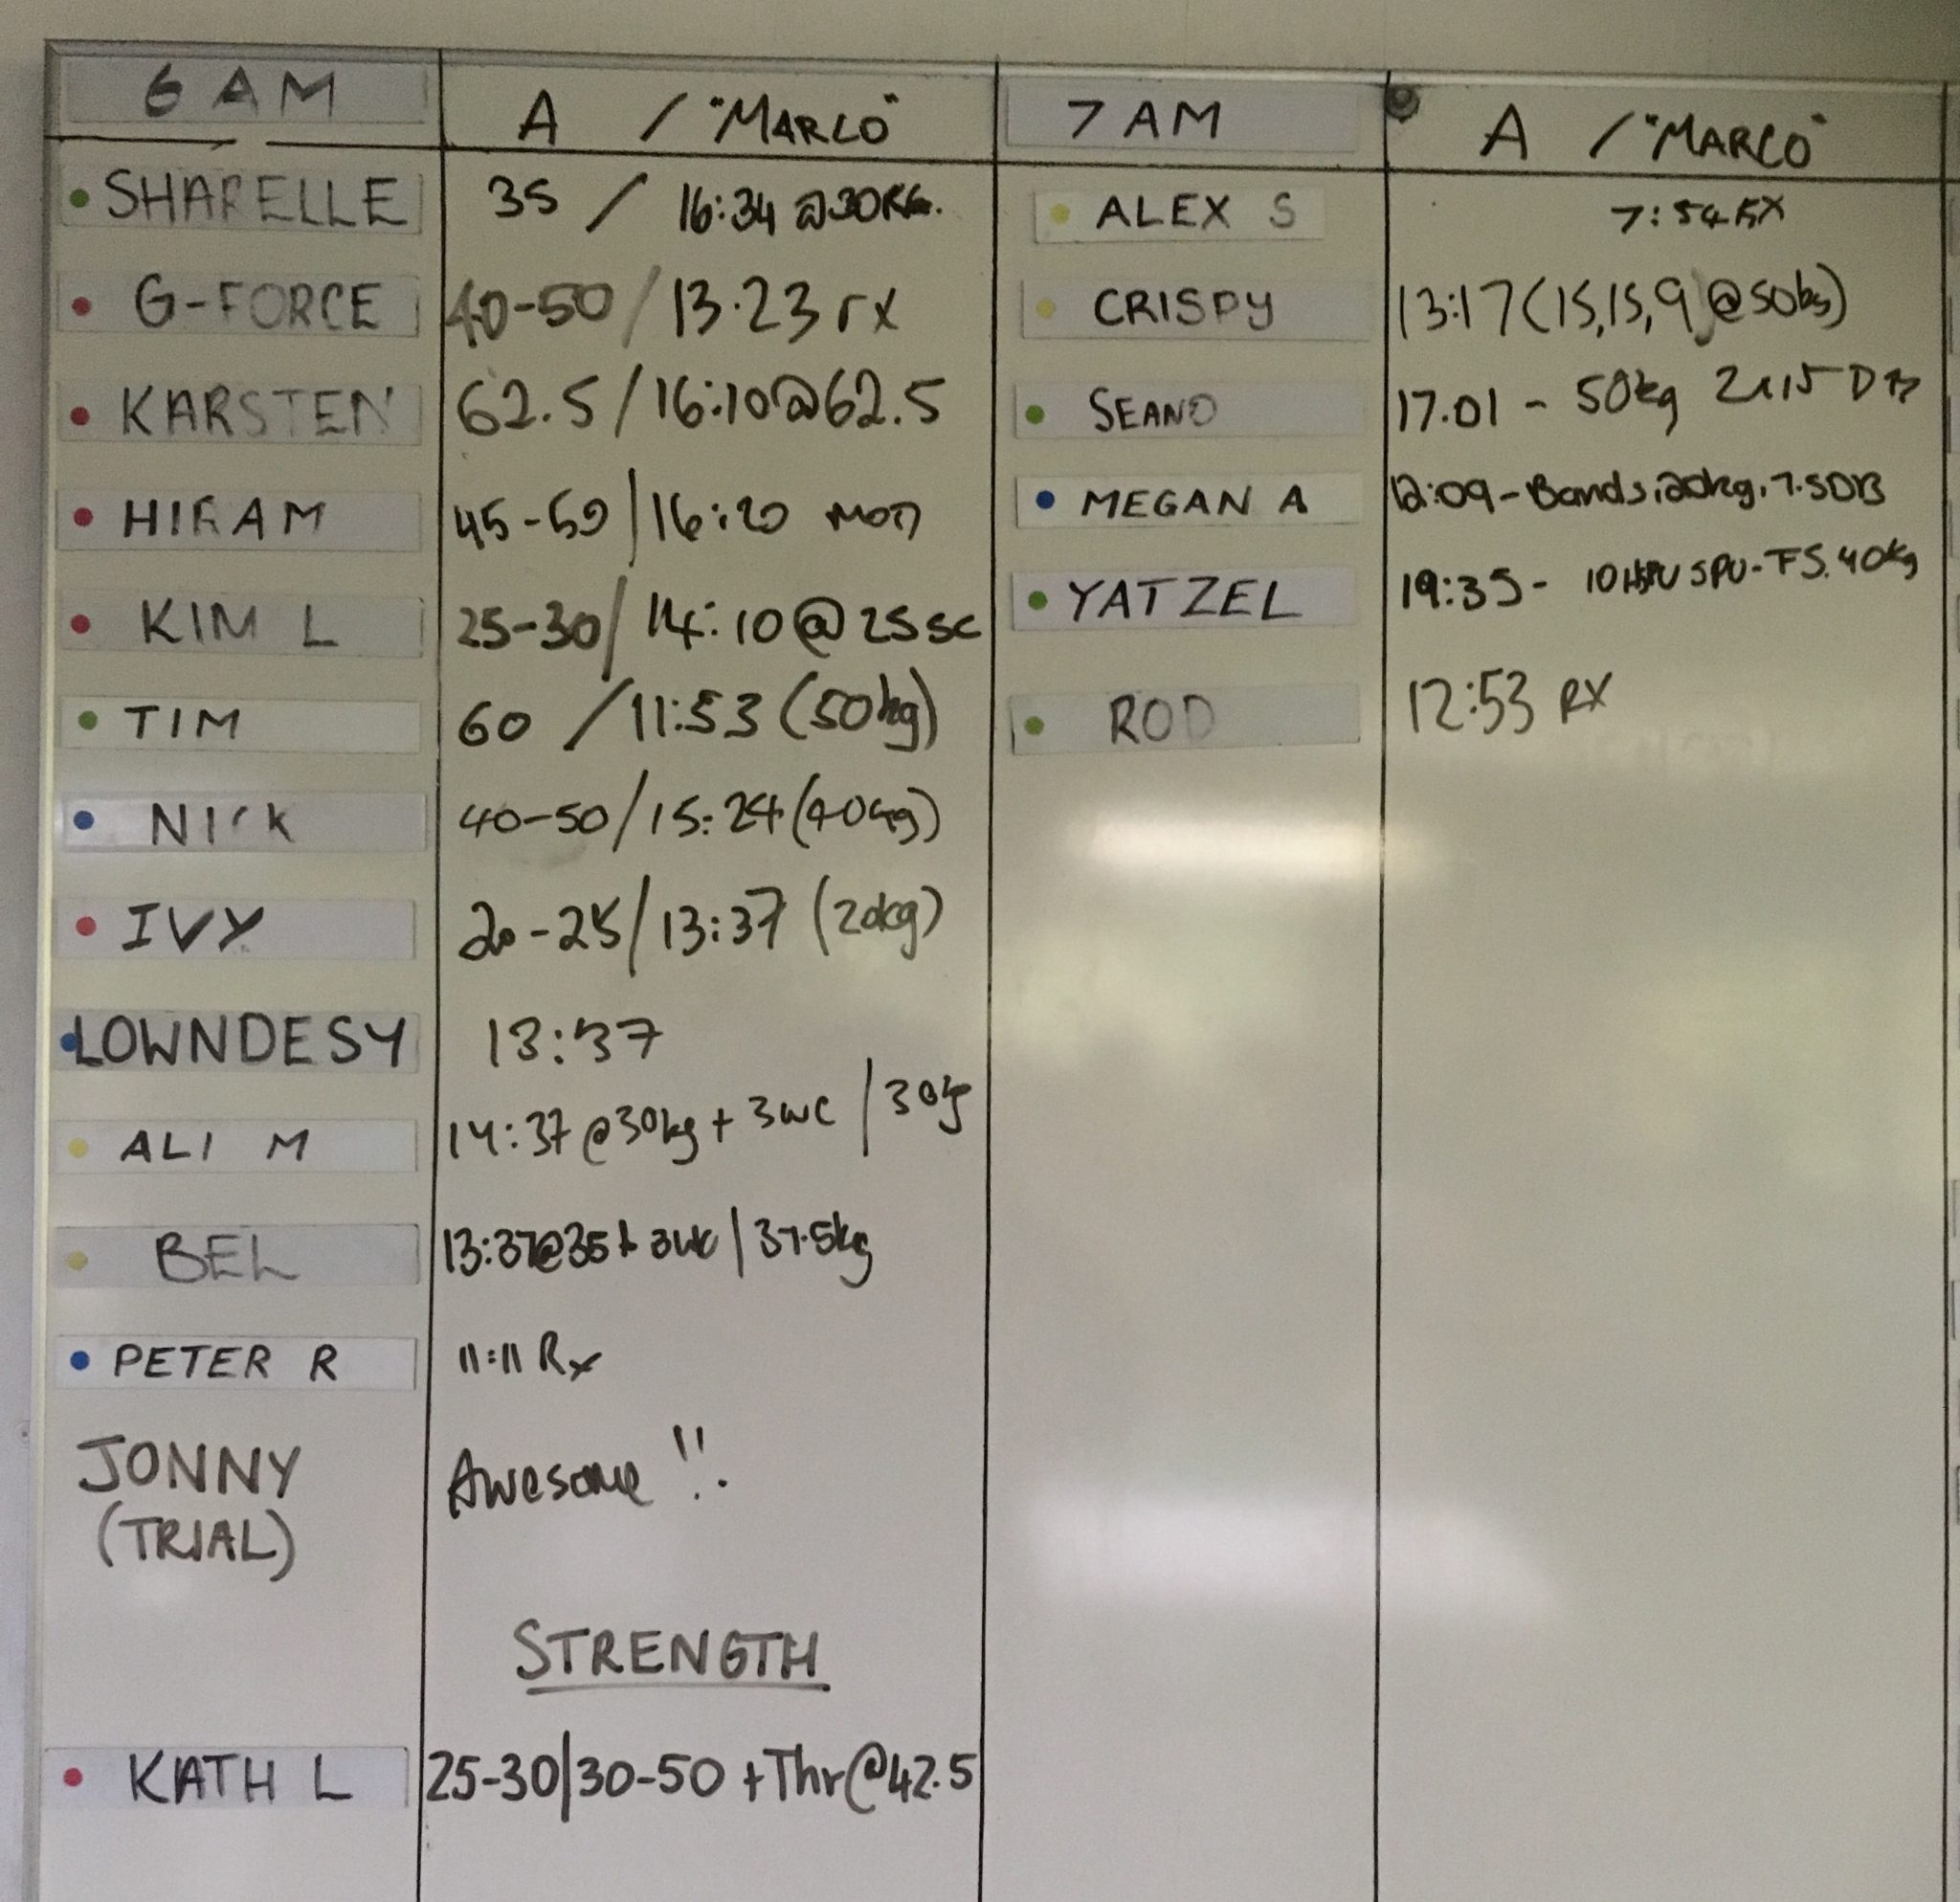 6 AM
A / "MARCO"
SHARELLE
35 / 16:34 @30KG.
G-FORCE
40-50 / 13.23 rx
KARSTEN
62.5 / 16:10 @ 62.5
HIRAM
45-50 | 16:20 mod
KIM L
25-30 / 14:10 @ 25 sc
TIM
60 / 11:53 (50kg)
NICK
40-50 / 15:24 (40kg)
IVY
20-25 / 13:37 (20kg)
LOWNDESY
13:37
ALI M
14:37 @30kg + 3wc | 30kg
BEL
13:37@35+ 3wc | 37.5kg
PETER R
11:11 Rx
JONNY
(TRIAL)
Awesome !!
STRENGTH
KATH L
25-30|30-50 +Thr@42.5
7 AM
A / "MARCO"
ALEX S
7:54 RX
CRISPY
13:17 (15,15,9 @50kg)
SEANO
17.01 - 50kg
MEGAN A
12:09 - Bands, 20kg, 7.5DB
YATZEL
19:35 - 10 HSPU SPU - FS. 40kg
ROD
12:53 RX